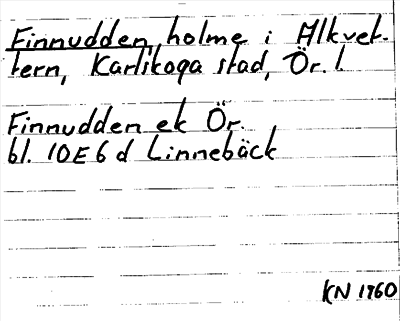 Finnudden holme i Alkvet-
tern, Karlskoga stad, Ör. l.
Finnudden ek Ör.
bl. 10E6d Linnebäck
KN 1960